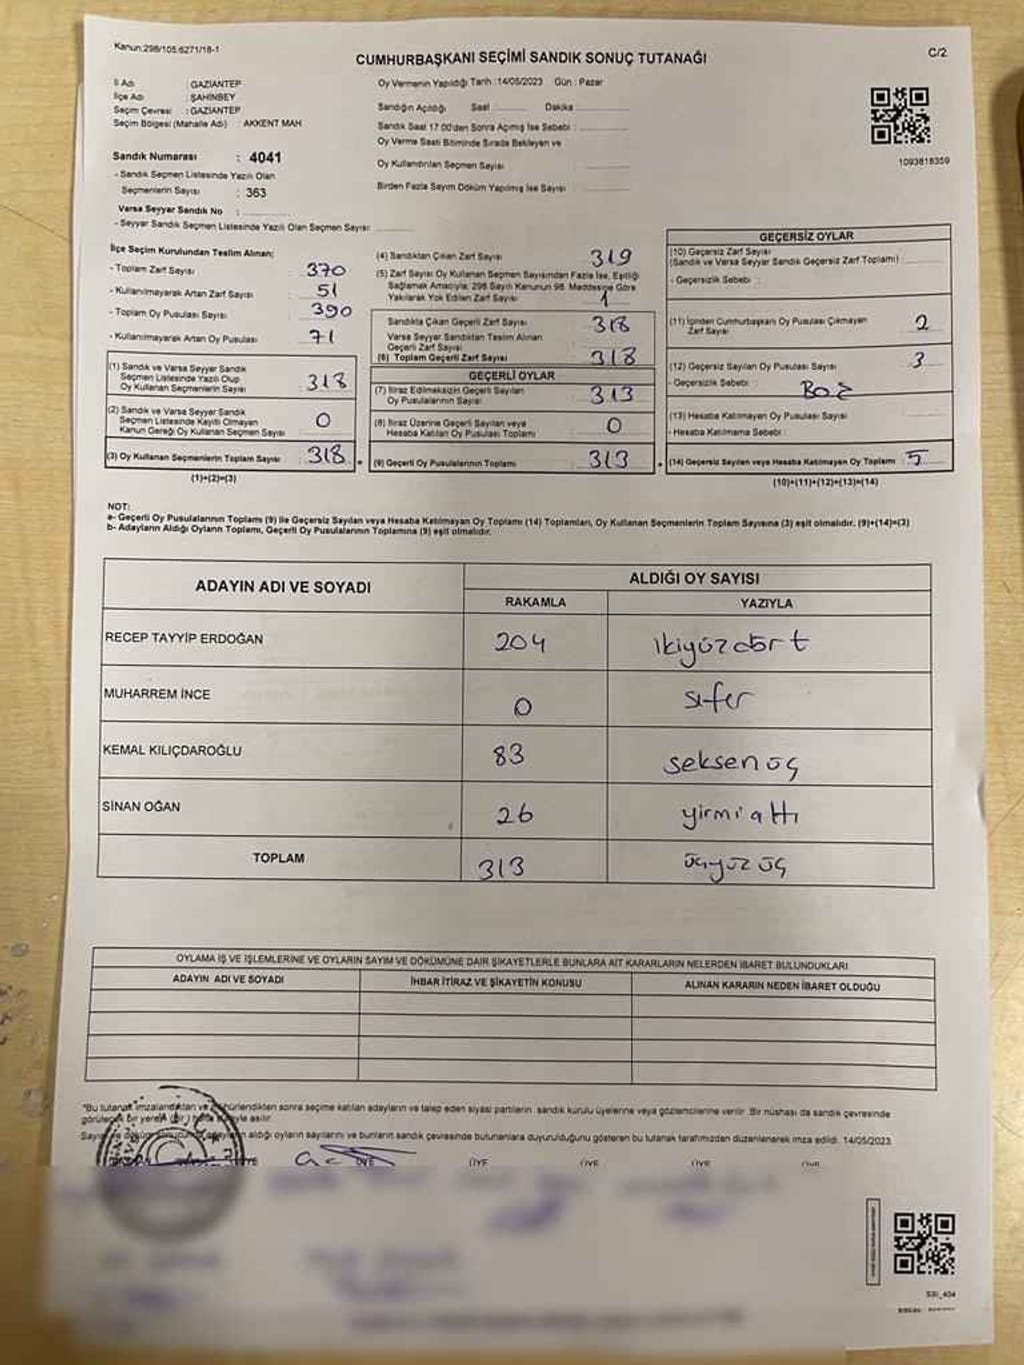 Kanun:298/105.6271/18-1
CUMHURBAŞKANI SEÇİMİ SANDIK SONUÇ TUTANAĞI
C/2
İl Adı : GAZİANTEP
İlçe Adı : ŞAHİNBEY
Seçim Çevresi : GAZİANTEP
Seçim Bölgesi (Mahalle Adı) : AKKENT MAH
Oy Vermenin Yapıldığı Tarih :14/05/2023 Gün : Pazar
Sandığın Açıldığı Saat Dakika
Sandık Saat 17:00'den Sonra Açımış İse Sebebi :
Oy Verme Saati Bitiminde Sırada Bekleyen ve
Oy Kullandırılan Seçmen Sayısı :
Birden Fazla Sayım Döküm Yapılmış İse Sayısı :
1093818359
Sandık Numarası : 4041
- Sandık Seçmen Listesinde Yazılı Olan
Seçmenlerin Sayısı : 363
Varsa Seyyar Sandık No :
- Seyyar Sandık Seçmen Listesinde Yazılı Olan Seçmen Sayısı
İlçe Seçim Kurulundan Teslim Alınan;
- Toplam Zarf Sayısı : 370
- Kullanılmayarak Artan Zarf Sayısı : 51
- Toplam Oy Pusulası Sayısı : 390
- Kullanılmayarak Artan Oy Pusulası : 71
(1) Sandık ve Varsa Seyyar Sandık
Seçmen Listesinde Yazılı Olup
Oy Kullanan Seçmenlerin Sayısı : 318
(2) Sandık ve Varsa Seyyar Sandık
Seçmen Listesinde Kayıtlı Olmayan
Kanun Gereği Oy Kullanan Seçmen Sayısı : 0
(3) Oy Kullanan Seçmenlerin Toplam Sayısı : 318
(1)+(2)=(3)
(4) Sandıktan Çıkan Zarf Sayısı : 319
(5) Zarf Sayısı Oy Kullanan Seçmen Sayısından Fazla İse, Eşitliği
Sağlamak Amacıyla, 298 Sayılı Kanunun 98. Maddesine Göre
Yakılarak Yok Edilen Zarf Sayısı : 1
Sandıkta Çıkan Geçerli Zarf Sayısı : 318
Varsa Seyyar Sandıktan Teslim Alınan
Geçerli Zarf Sayısı
(6) Toplam Geçerli Zarf Sayısı : 318
GEÇERLİ OYLAR
(7) İtiraz Edilmeksizin Geçerli Sayılan
Oy Pusulalarının Sayısı : 313
(8) İtiraz Üzerine Geçerli Sayılan veya
Hesaba Katılan Oy Pusulası Toplamı : 0
(9) Geçerli Oy Pusulalarının Toplamı : 313
GEÇERSİZ OYLAR
(10) Geçersiz Zarf Sayısı
(Sandık ve Varsa Seyyar Sandık Geçersiz Zarf Toplamı)
- Geçersizlik Sebebi :
(11) İçinden Cumhurbaşkanı Oy Pusulası Çıkmayan
Zarf Sayısı : 2
(12) Geçersiz Sayılan Oy Pusulası Sayısı : 3
Geçersizlik Sebebi :
(13) Hesaba Katılmayan Oy Pusulası Sayısı
- Hesaba Katılmama Sebebi :
(14) Geçersiz Sayılan veya Hesaba Katılmayan Oy Toplamı : 5
(10)+(11)+(12)+(13)=(14)
NOT:
a- Geçerli Oy Pusulalarının Toplamı (9) ile Geçersiz Sayılan veya Hesaba Katılmayan Oy Toplamı (14) Toplamları, Oy Kullanan Seçmenlerin Toplam Sayısına (3) eşit olmalıdır. (9)+(14)=(3)
b- Adayların Aldığı Oyların Toplamı, Geçerli Oy Pusulalarının Toplamına (9) eşit olmalıdır.
ADAYIN ADI VE SOYADI ALDIĞI OY SAYISI
RAKAMLA YAZIYLA
RECEP TAYYİP ERDOĞAN 204 ikiyüzdört
MUHARREM İNCE 0 sıfır
KEMAL KILIÇDAROĞLU 83 seksenüç
SİNAN OĞAN 26 yirmialtı
TOPLAM 313 üçyüzüç
OYLAMA İŞ VE İŞLEMLERİNE VE OYLARIN SAYIM VE DÖKÜMÜNE DAİR ŞİKAYETLERLE BUNLARA AİT KARARLARIN NELERDEN İBARET BULUNDUKLARI
ADAYIN ADI VE SOYADI İHBAR İTİRAZ VE ŞİKAYETİN KONUSU ALINAN KARARIN NEDEN İBARET OLDUĞU
*Bu tutanak imzalandıktan ve mühürlendikten sonra seçime katılan adayların ve talep eden siyasi partilerin sandık kurulu üyelerine veya gözlemcilerine verilir. Bir nüshası da sandık çevresinde
aldığı oyların sayılarını ve bunların sandık çevresinde bulunanlara duyurulduğunu gösteren bu tutanak tarafımızdan düzenlenerek imza edildi. 14/05/2023
ÜYE ÜYE ÜYE ÜYE ÜYE